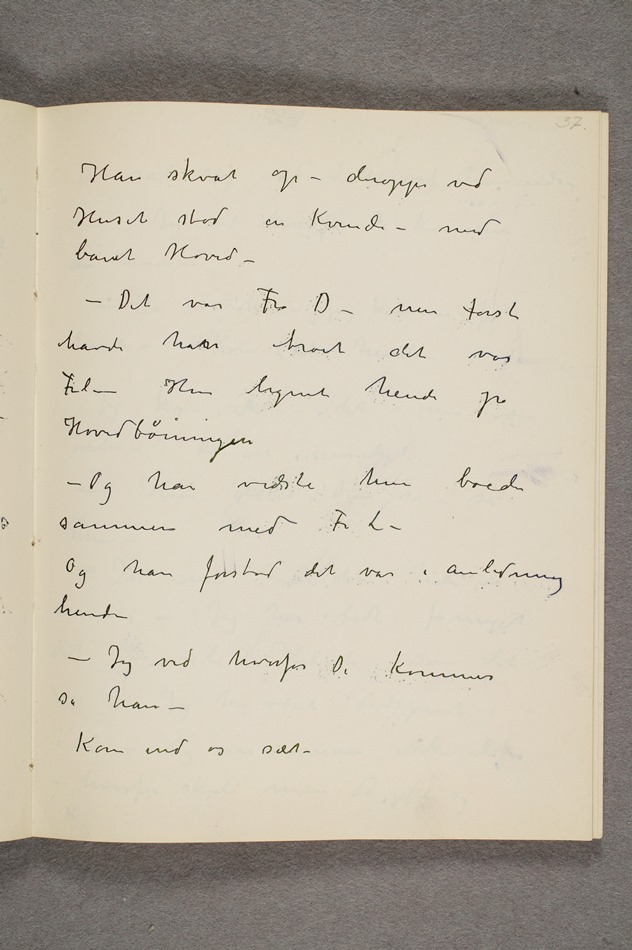 37.
Han skvat op – deroppe ved
Huset stod en Kvinde – med
baret Hoved –
– Det var Fr D – men først
havde han troet det var
F L – Hun lignet hende på
Hovedbøiningen
– Og han vidste hun boede
sammen med Fr L –
Og han forstod det var i anledning
hende
– Jeg ved hvorfor De kommer
sa han –
Kom ind og sæt –